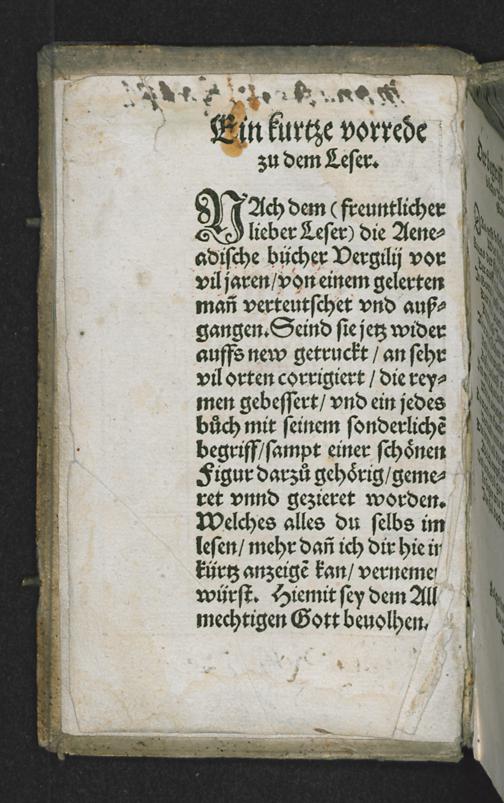 Ein kurtze vorrede
zu dem Leser.
NAch dem (freuntlicher
lieber Leser) die Aene⸗
adische bücher Vergilij vor
vil jaren/von einem gelerten
mañ verteutschet vnd auß⸗
gangen. Seind sie jetz wider
auffs new getruckt / an sehr
vil orten corrigiert / die rey⸗
men gebessert/ vnd ein jedes
bůch mit seinem sonderlichẽ
begriff/sampt einer schönen
Figur darzů gehörig/geme⸗
ret vnnd gezieret worden.
Welches alles du selbs im
lesen/ mehr dañ ich dir hie in
kürtz anzeigẽ kan/ verneme
würst. Hiemit sey dem All
mechtigen Gott beuolhen.